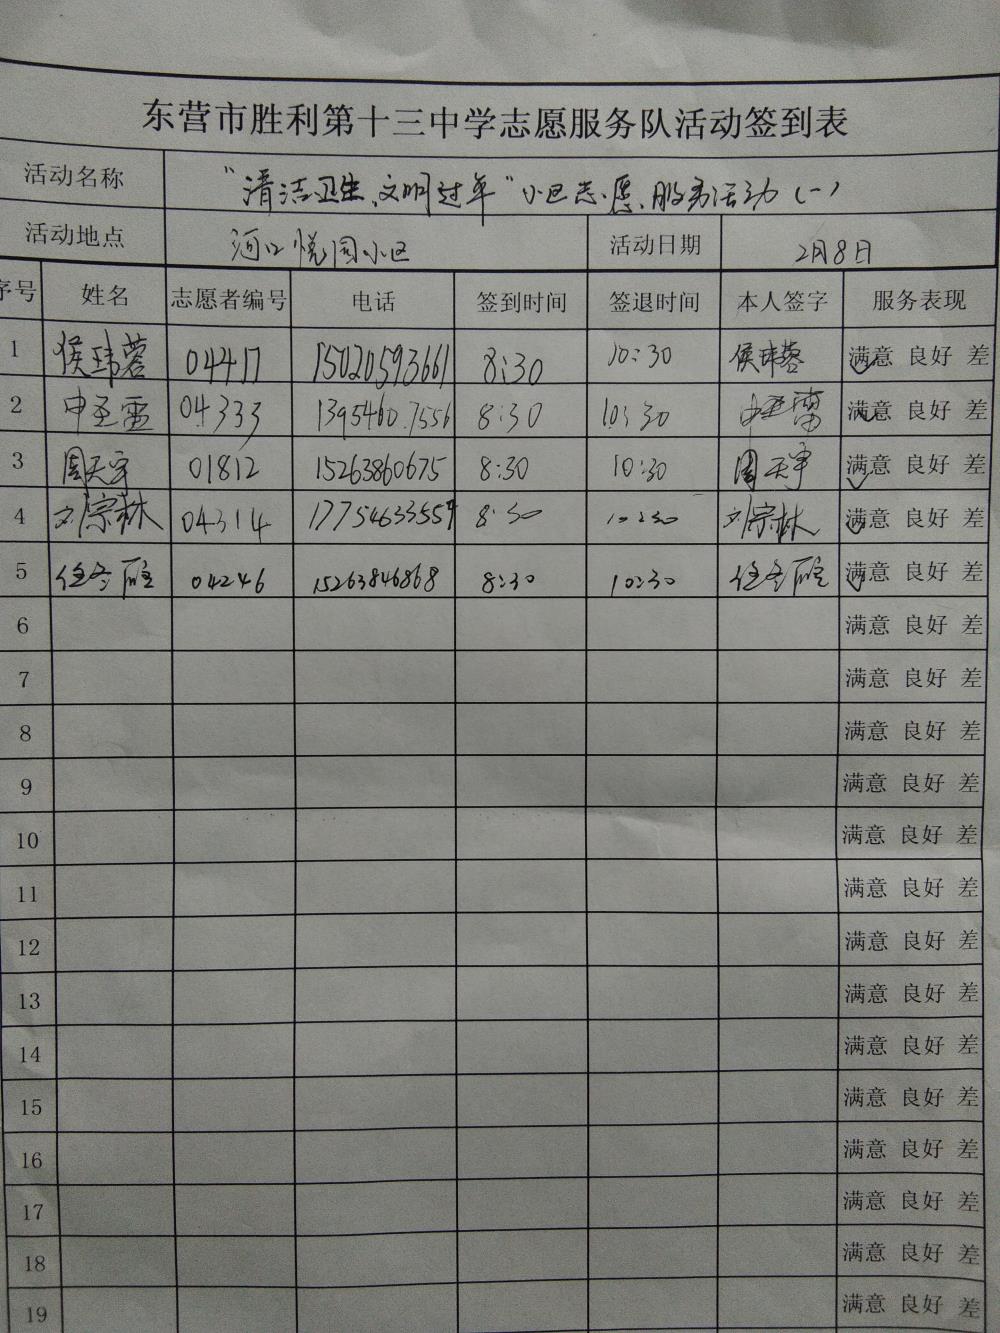 东营市胜利第十三中学志愿服务队活动签到表
活动名称 “清洁卫生、文明过年”小区志愿服务活动(一)
活动地点 河口悦园小区 活动日期 2月8日
序号 姓名 志愿者编号 电话 签到时间 签退时间 本人签字 服务表现
1 侯玮蓉 04417 15020593661 8:30 10:30 侯玮蓉 满意 良好 差
2 04333 13954607556 8:30 10:30 满意 良好 差
3 周天宇 01812 15263860675 8:30 10:30 周天宇 满意 良好 差
4 刘宗林 04314 17754633559 8:30 10:30 刘宗林 满意 良好 差
5 04246 15263846868 8:30 10:30 满意 良好 差
6 满意 良好 差
7 满意 良好 差
8 满意 良好 差
9 满意 良好 差
10 满意 良好 差
11 满意 良好 差
12 满意 良好 差
13 满意 良好 差
14 满意 良好 差
15 满意 良好 差
16 满意 良好 差
17 满意 良好 差
18 满意 良好 差
19 满意 良好 差